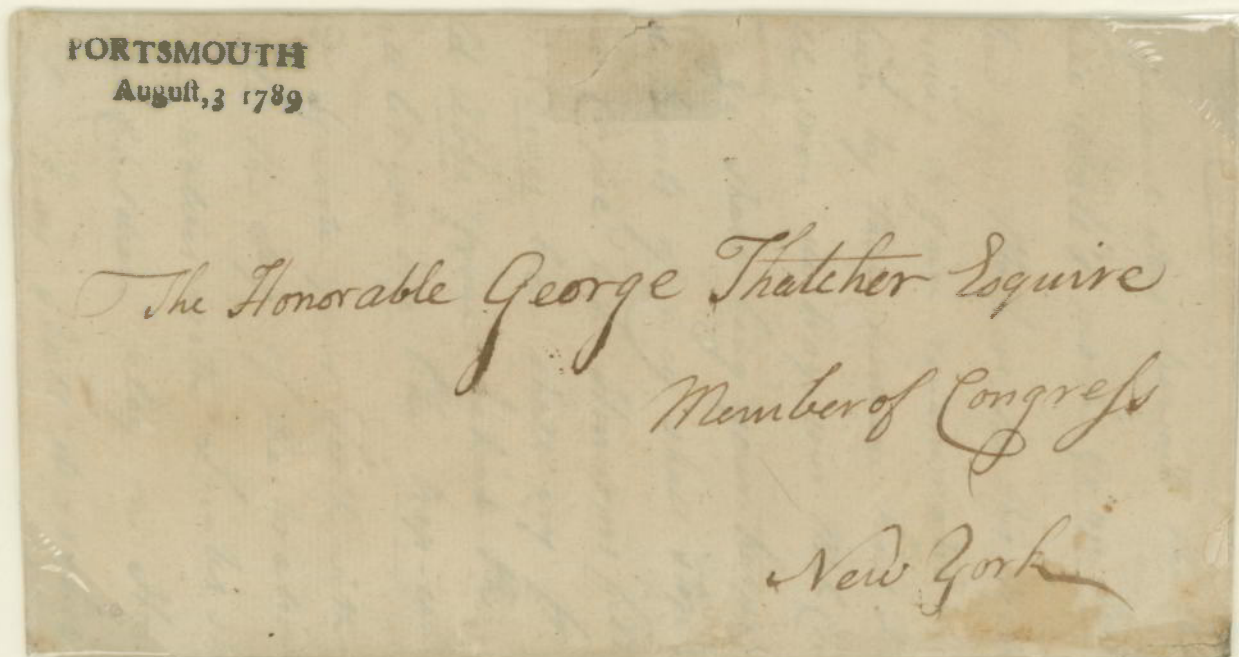 PORTSMOUTH
Auguſt,3 1789
The Honorable George Thatcher Esquire
Member of Congreſs
New York